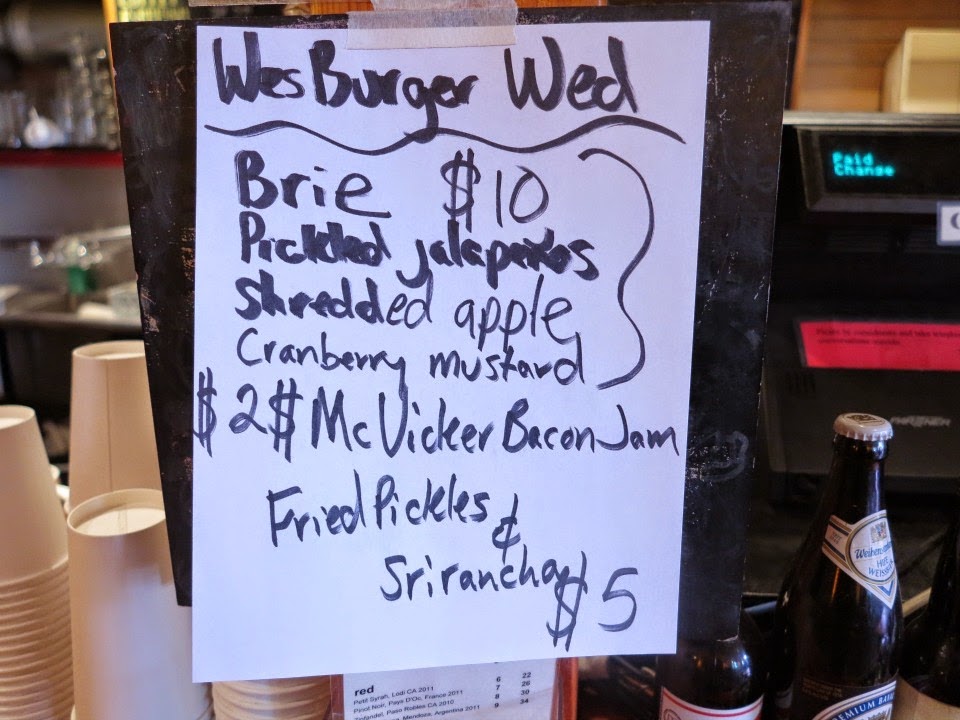 WesBurger Wed
Brie $10
Pickled jalapeños
shredded apple
Cranberry mustard
$2$ McVicker Bacon Jam
Fried Pickles
&
Sriranchа
$5
Paid
Change
red 6 22
Petit Syrah, Lodi CA 2011 7 26
Pinot Noir, Pays D'Oc, France 2011 8 30
Zinfandel, Paso Robles CA 2010 9 34
Mendoza, Argentina 2011
HEFE
WEISS
PREMIUM